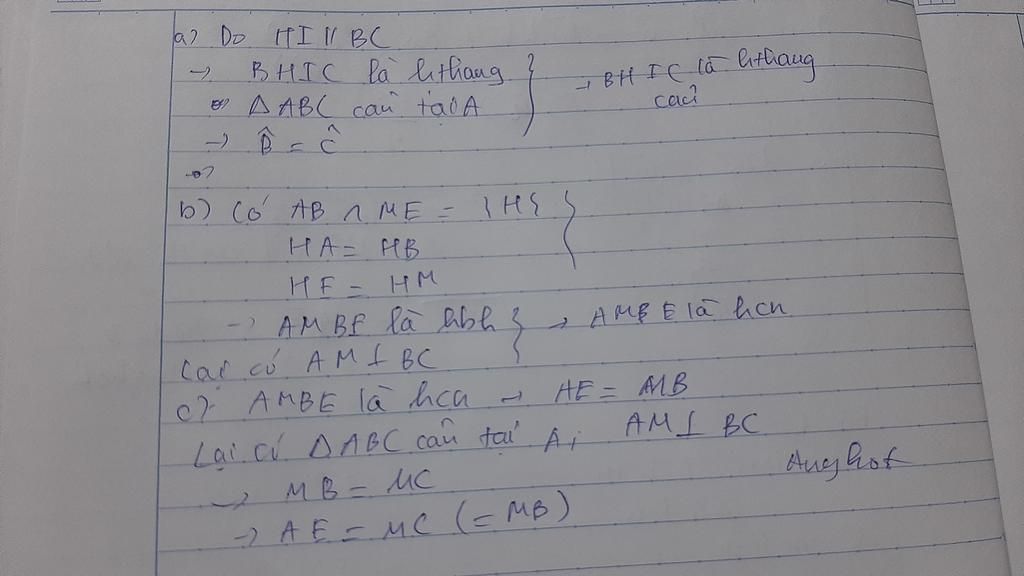 a) Do HI // BC
→ BHIC là hthang } → BHIC là hthang
⇒ △ABC cân tại A cân
→ B̂ = Ĉ
b) Có AB ∩ ME = {H} }
HA = HB
HE = HM
→ AMBE là hbh } → AMBE là hcn
Lại có AM ⊥ BC
c) AMBE là hcn → AE = MB
Lại có △ABC cân tại A, AM ⊥ BC
→ MB = MC
→ AE = MC (= MB)